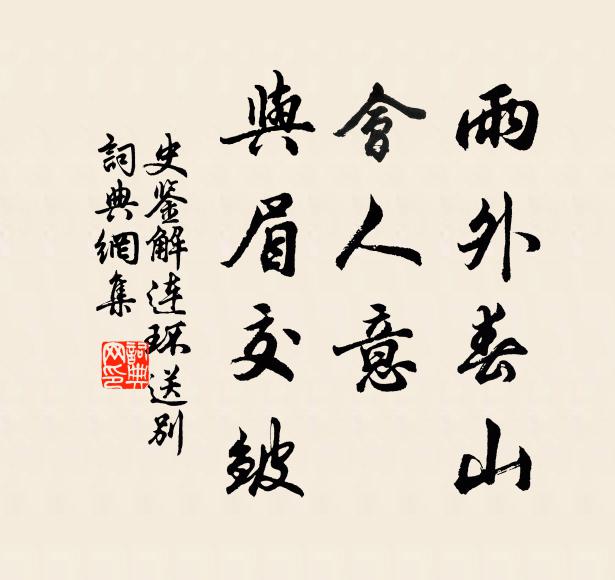 雨外春山
會人意
與眉交皴
史鉴解连环送別
詞典網集
詞典
网印